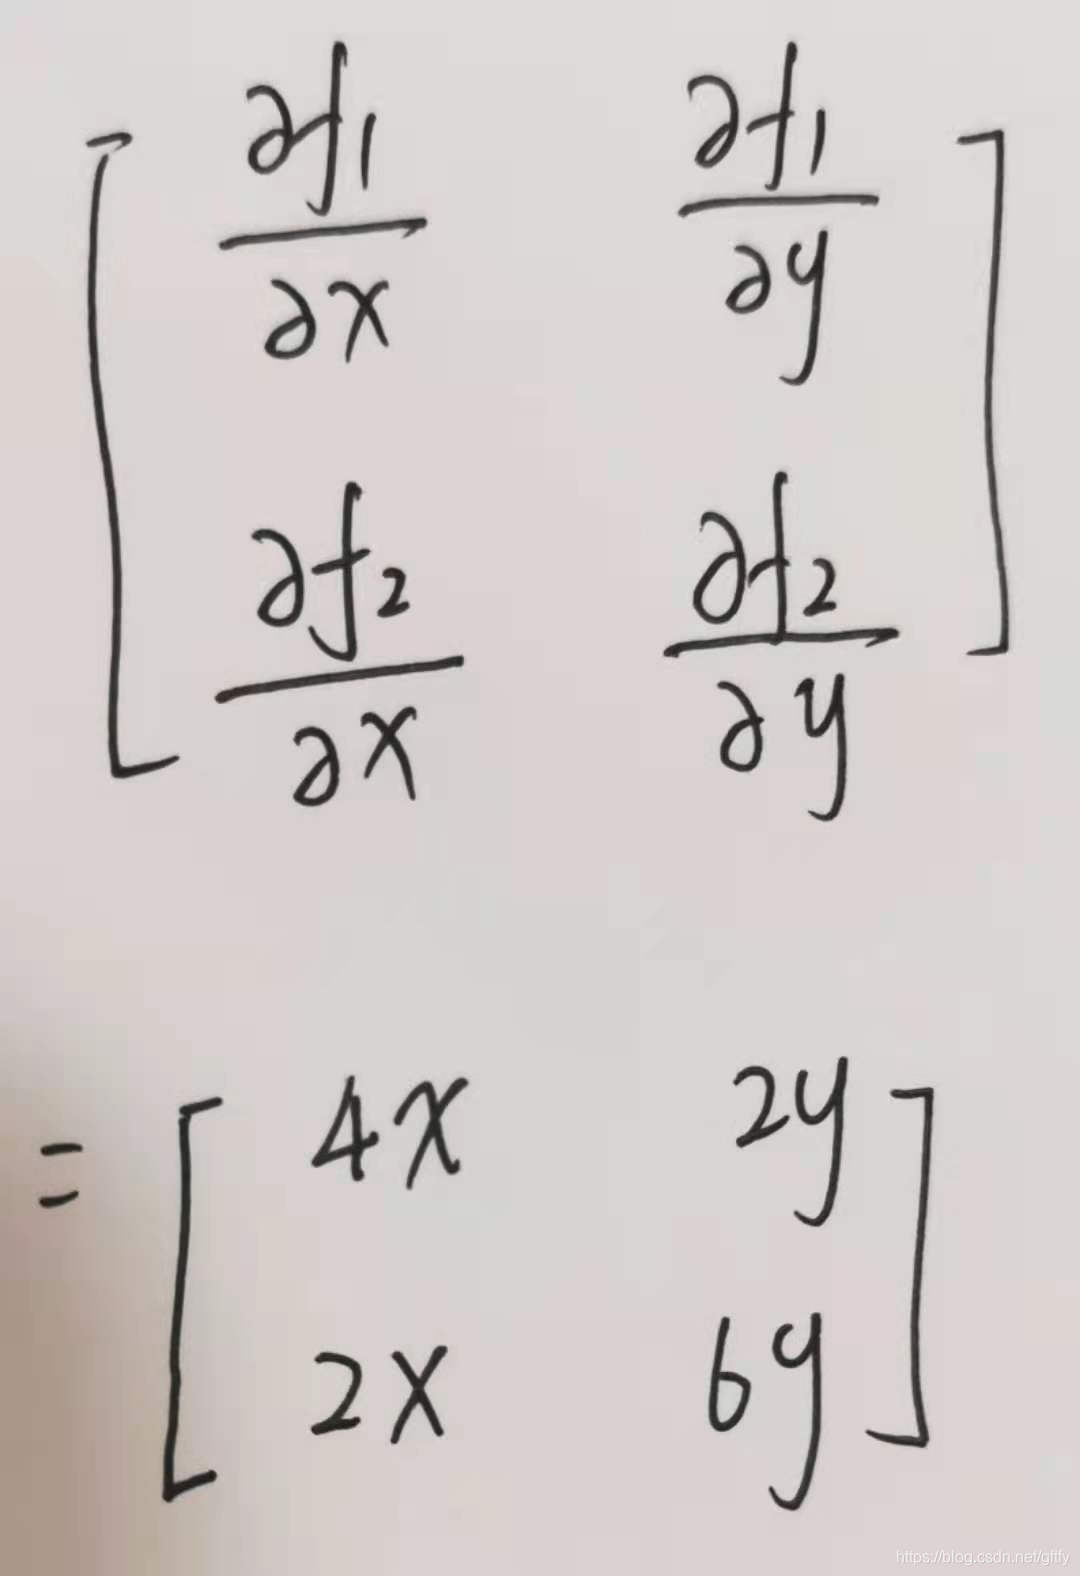 [ ∂f₁/∂x ∂f₁/∂y ]
[ ∂f₂/∂x ∂f₂/∂y ]
= [ 4x 2y ]
[ 2x 6y ]
https://blog.csdn.net/gftfy